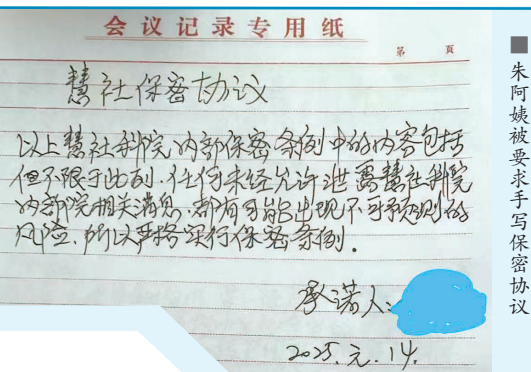 会议记录专用纸
第 页
慧社保密协议
以上慧社科院内部保密条例中的内容包括
但不限于此例.任何未经允许泄露慧社科院
内部院相关消息,都有可能出现不可预测的
风险,所以严格实行保密条例.
承诺人:
2025.元.14.
■朱阿姨被要求手写保密协议